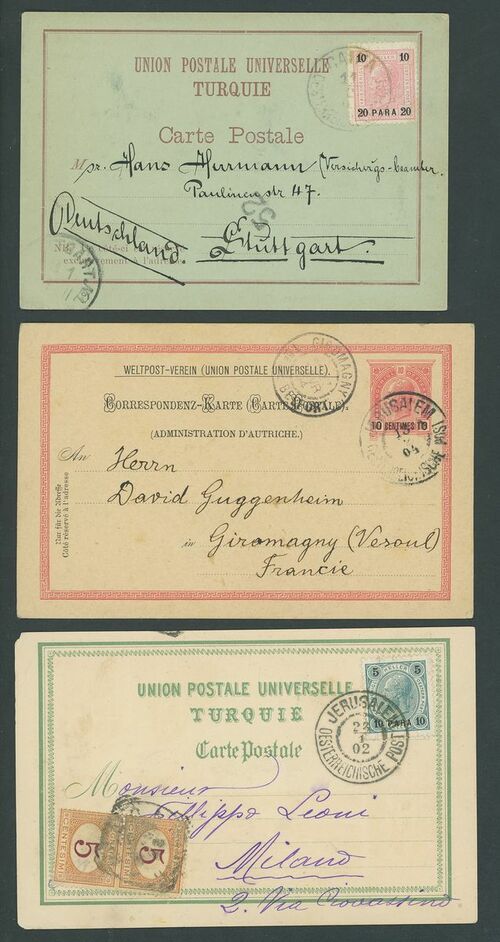 10 10
20 PARA 20
UNION POSTALE UNIVERSELLE
TURQUIE
Carte Postale
Mr. Hans Hermann (Versich'gs-beamter
Paulinenstr 47.
Deutschland. Stuttgart.
GIROMAGNY
10
WELTPOST-VEREIN (UNION POSTALE UNIVERSELLE).
CORRESPONDENZ-KARTE (CARTE POSTALE).
(ADMINISTRATION D'AUTRICHE.)
10 CENTIMES 10
JERUSALEM
04
An Herrn
David Guggenheim
in Giromagny (Vesoul)
Francie
Nur für die Adresse
Côté réservé à l'adresse
5 5
10 PARA 10
UNION POSTALE UNIVERSELLE
TURQUIE
Carte Postale
JERUSALEM
23
1
02
OESTERREICHISCHE POST
Monsieur
Filippo Leoni
Milano
2. Via
5 5
CENTESIMI